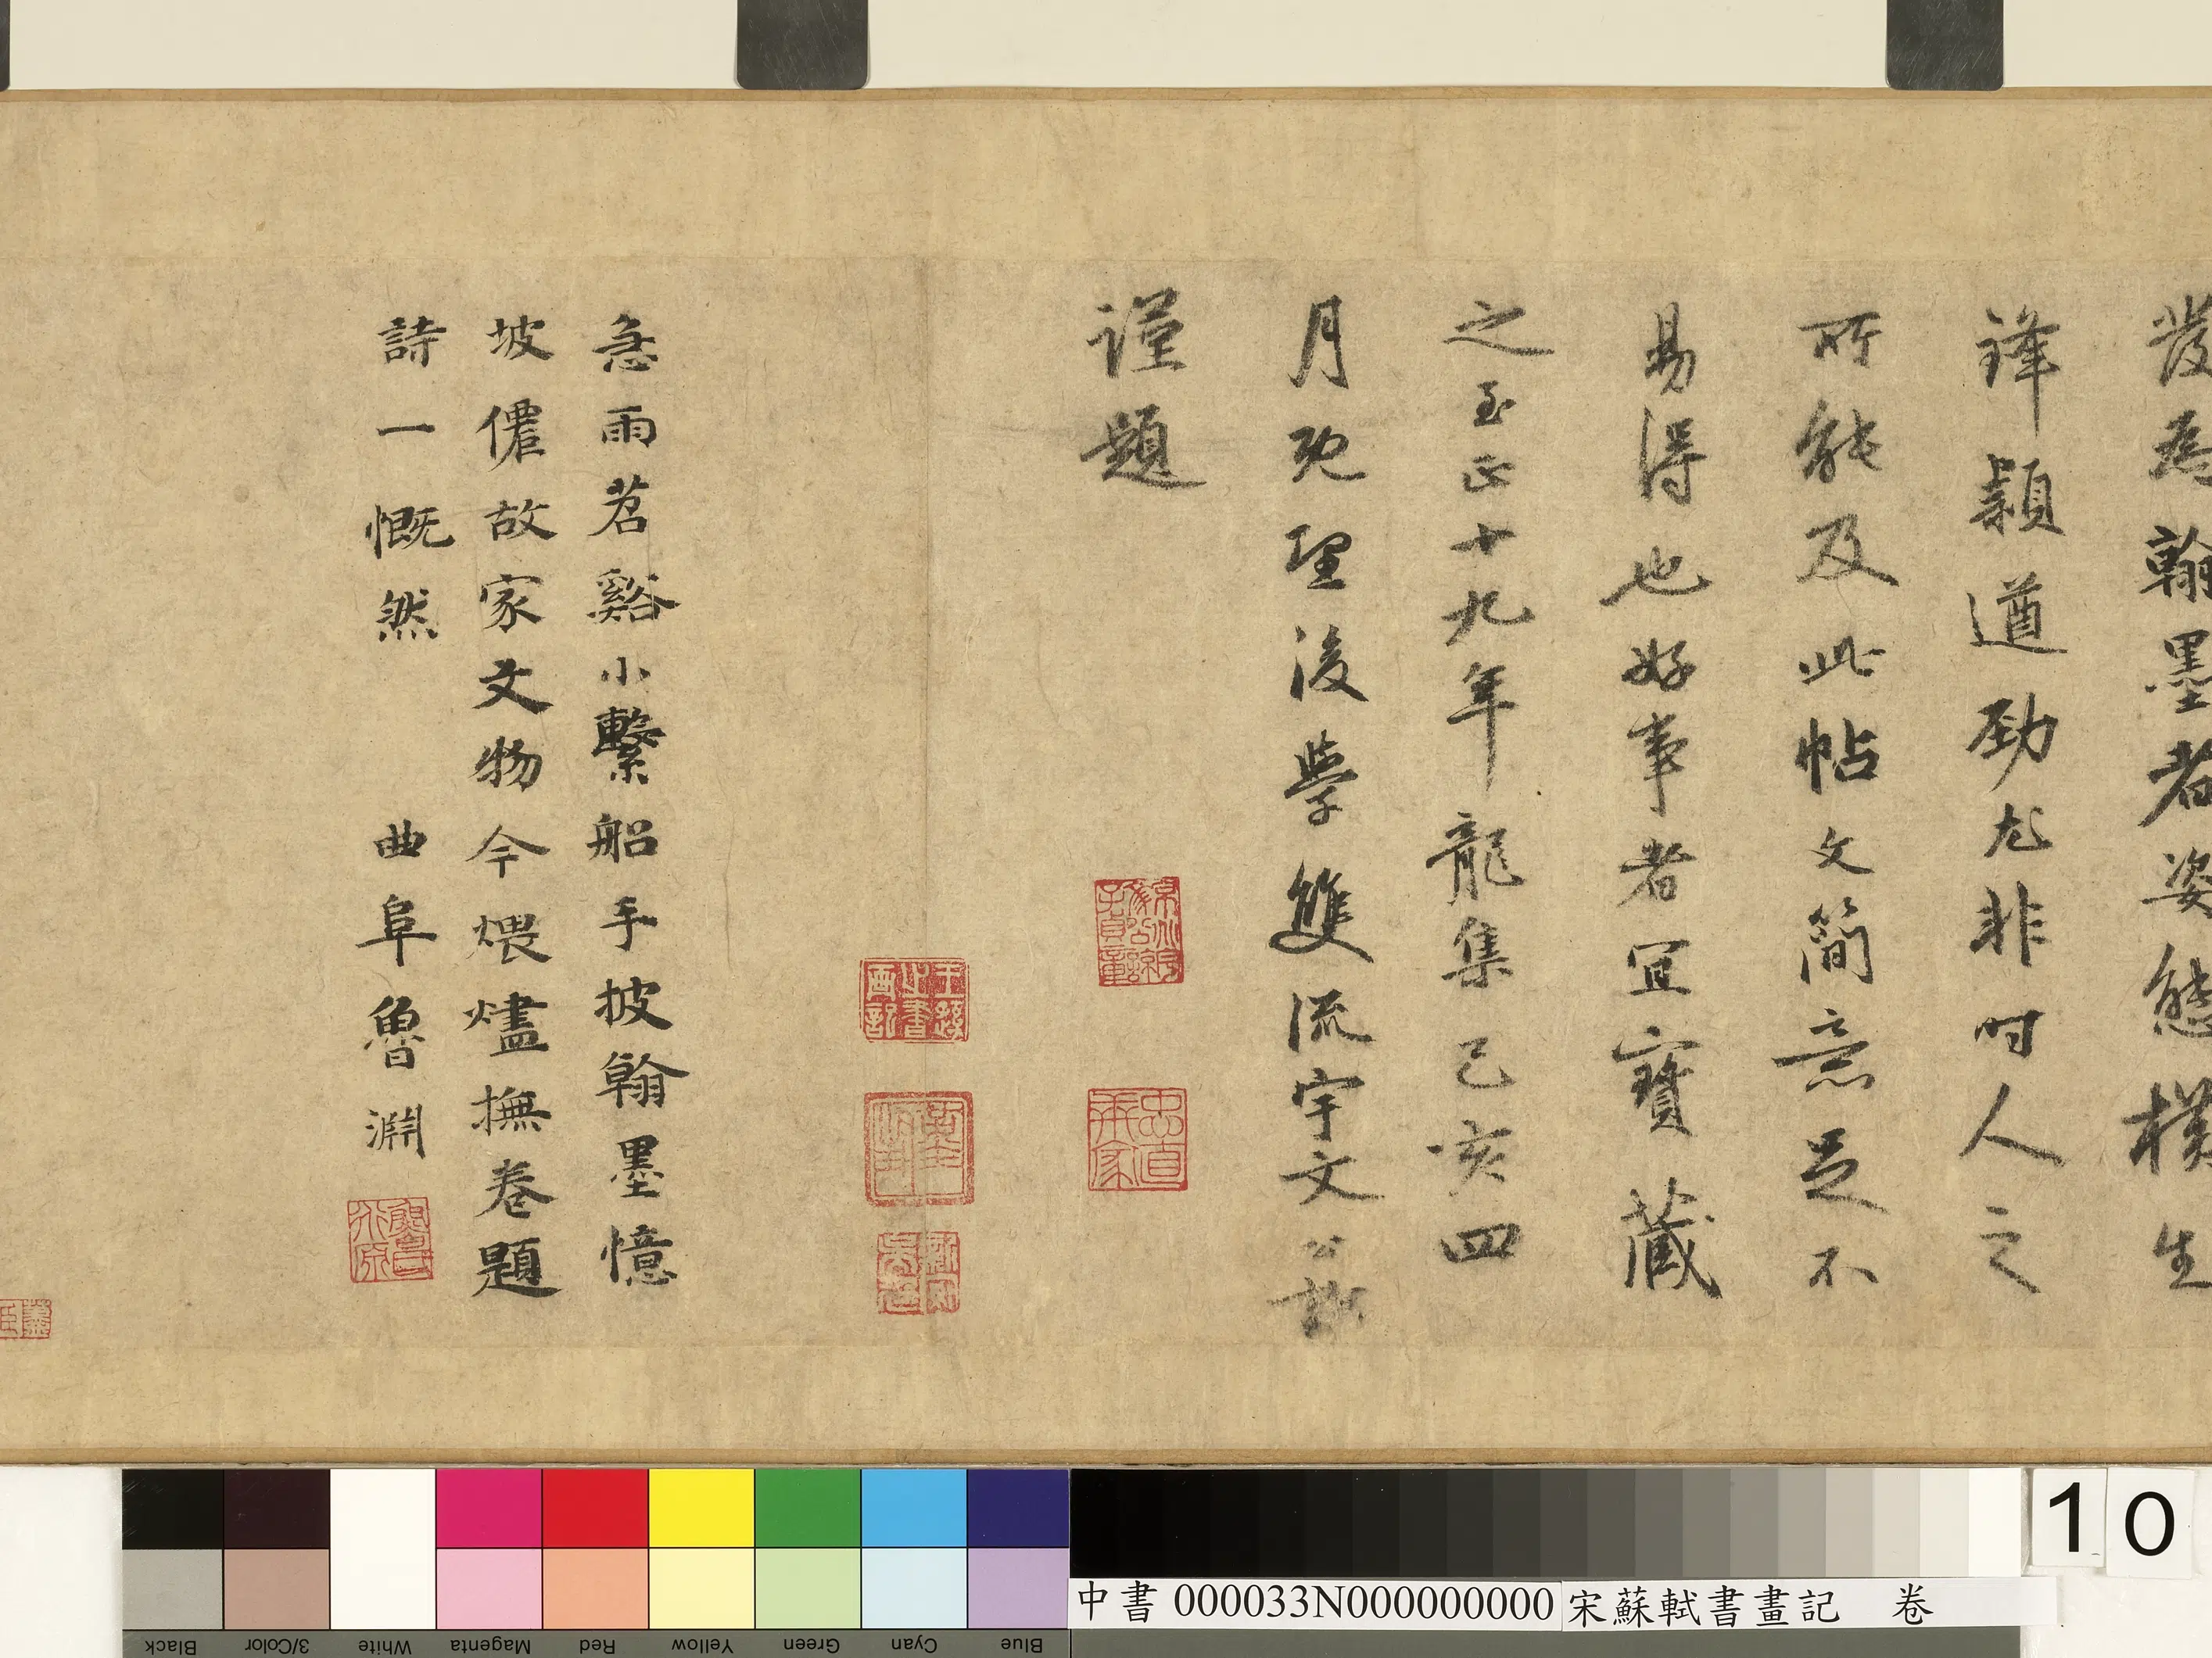 發為翰墨者姿態橫生
鋒穎遒勁尤非時人之
所能及此帖文簡意足不
易得也好事者宜寶藏
之至正十九年龍集己亥四
月既望後學雙流宇文公諒
謹題
急雨苕谿小繫船手披翰墨憶
坡僊故家文物今煨燼撫卷題
詩一慨然 曲阜魯淵
忠直
10
中書 000033N000000000 宋蘇軾書畫記 卷
Black 3/Color White Magenta Red Yellow Green Cyan Blue